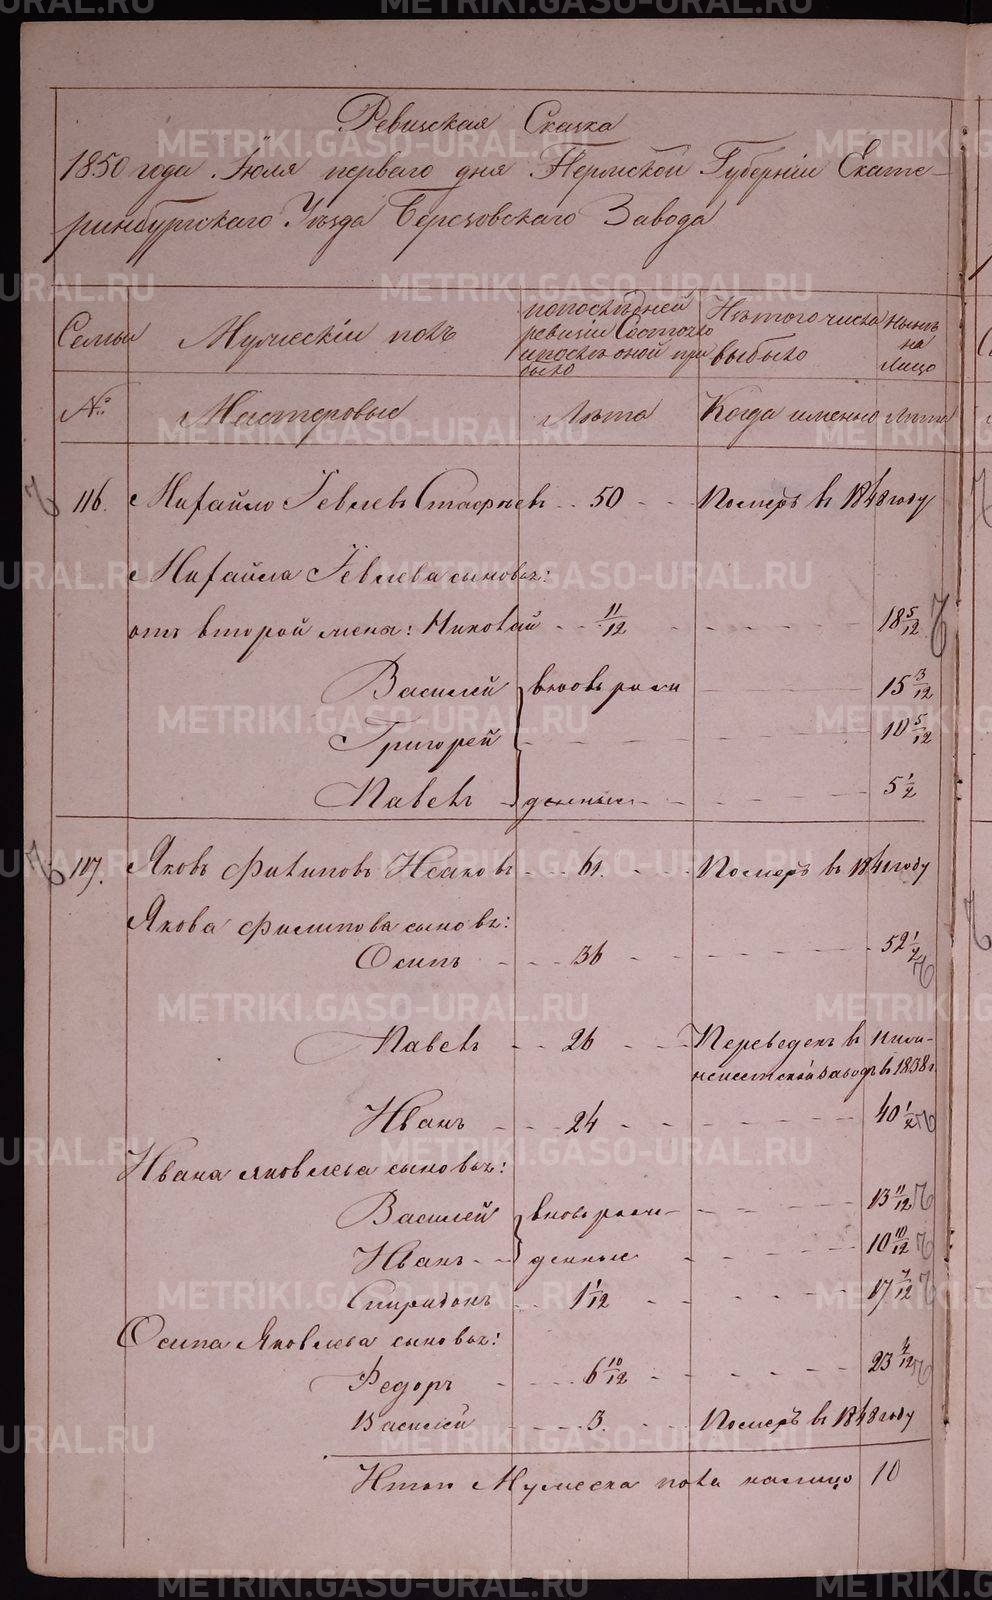 Ревизская Сказка
1850 года Июля перваго дня Пермской Губернiи Екате-
ринбургскаго Уѣзда Березовскаго Завода
Семьи
Мужескiй полъ
попослѣдней
ревизiи Состояло
ипослѣ оной при
было
Изтого числа
выбыло
Нынѣ
на
Лицо
№
Мастеровые
Лѣта
Когда именно
Лѣта
116. Михайло Iевлевъ 50 Померъ в 1848 году
Михайла Iевлева сыновья:
отъ второй жены: Николай 11/12 18 5/12
Василей вновь рожи 15 3/12
Григорей 10 5/12
Павелъ денные 5 1/2
117. Яковъ Филиповъ Исаковъ 61. Померъ въ 1841 году
Якова Филипова сыновья:
Осипъ 36 52 1/2
Павелъ 26 Переведенъ в Нижне-
исетскiй заводъ в 1838 г.
Иванъ 24 40 1/2
Ивана Яковлева сыновья:
Василей вновь рожи- 13 11/12
Иванъ денные 10 10/12
Спиридонъ 1 1/12 17 7/12
Осипа Яковлева сыновья:
Федоръ 6 10/12 23 4/12
Василей 3. Померъ в 1848 году
Итого Мужеска пола налицо 10
METRIKI.GASO-URAL.RU